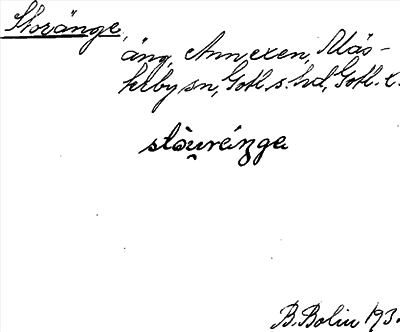 Storänge,
äng, Annexen, Mäs-
terby sn, Gotl. s. hd, Gotl. l.
stòu̯réŋga
B. Bolin 193.